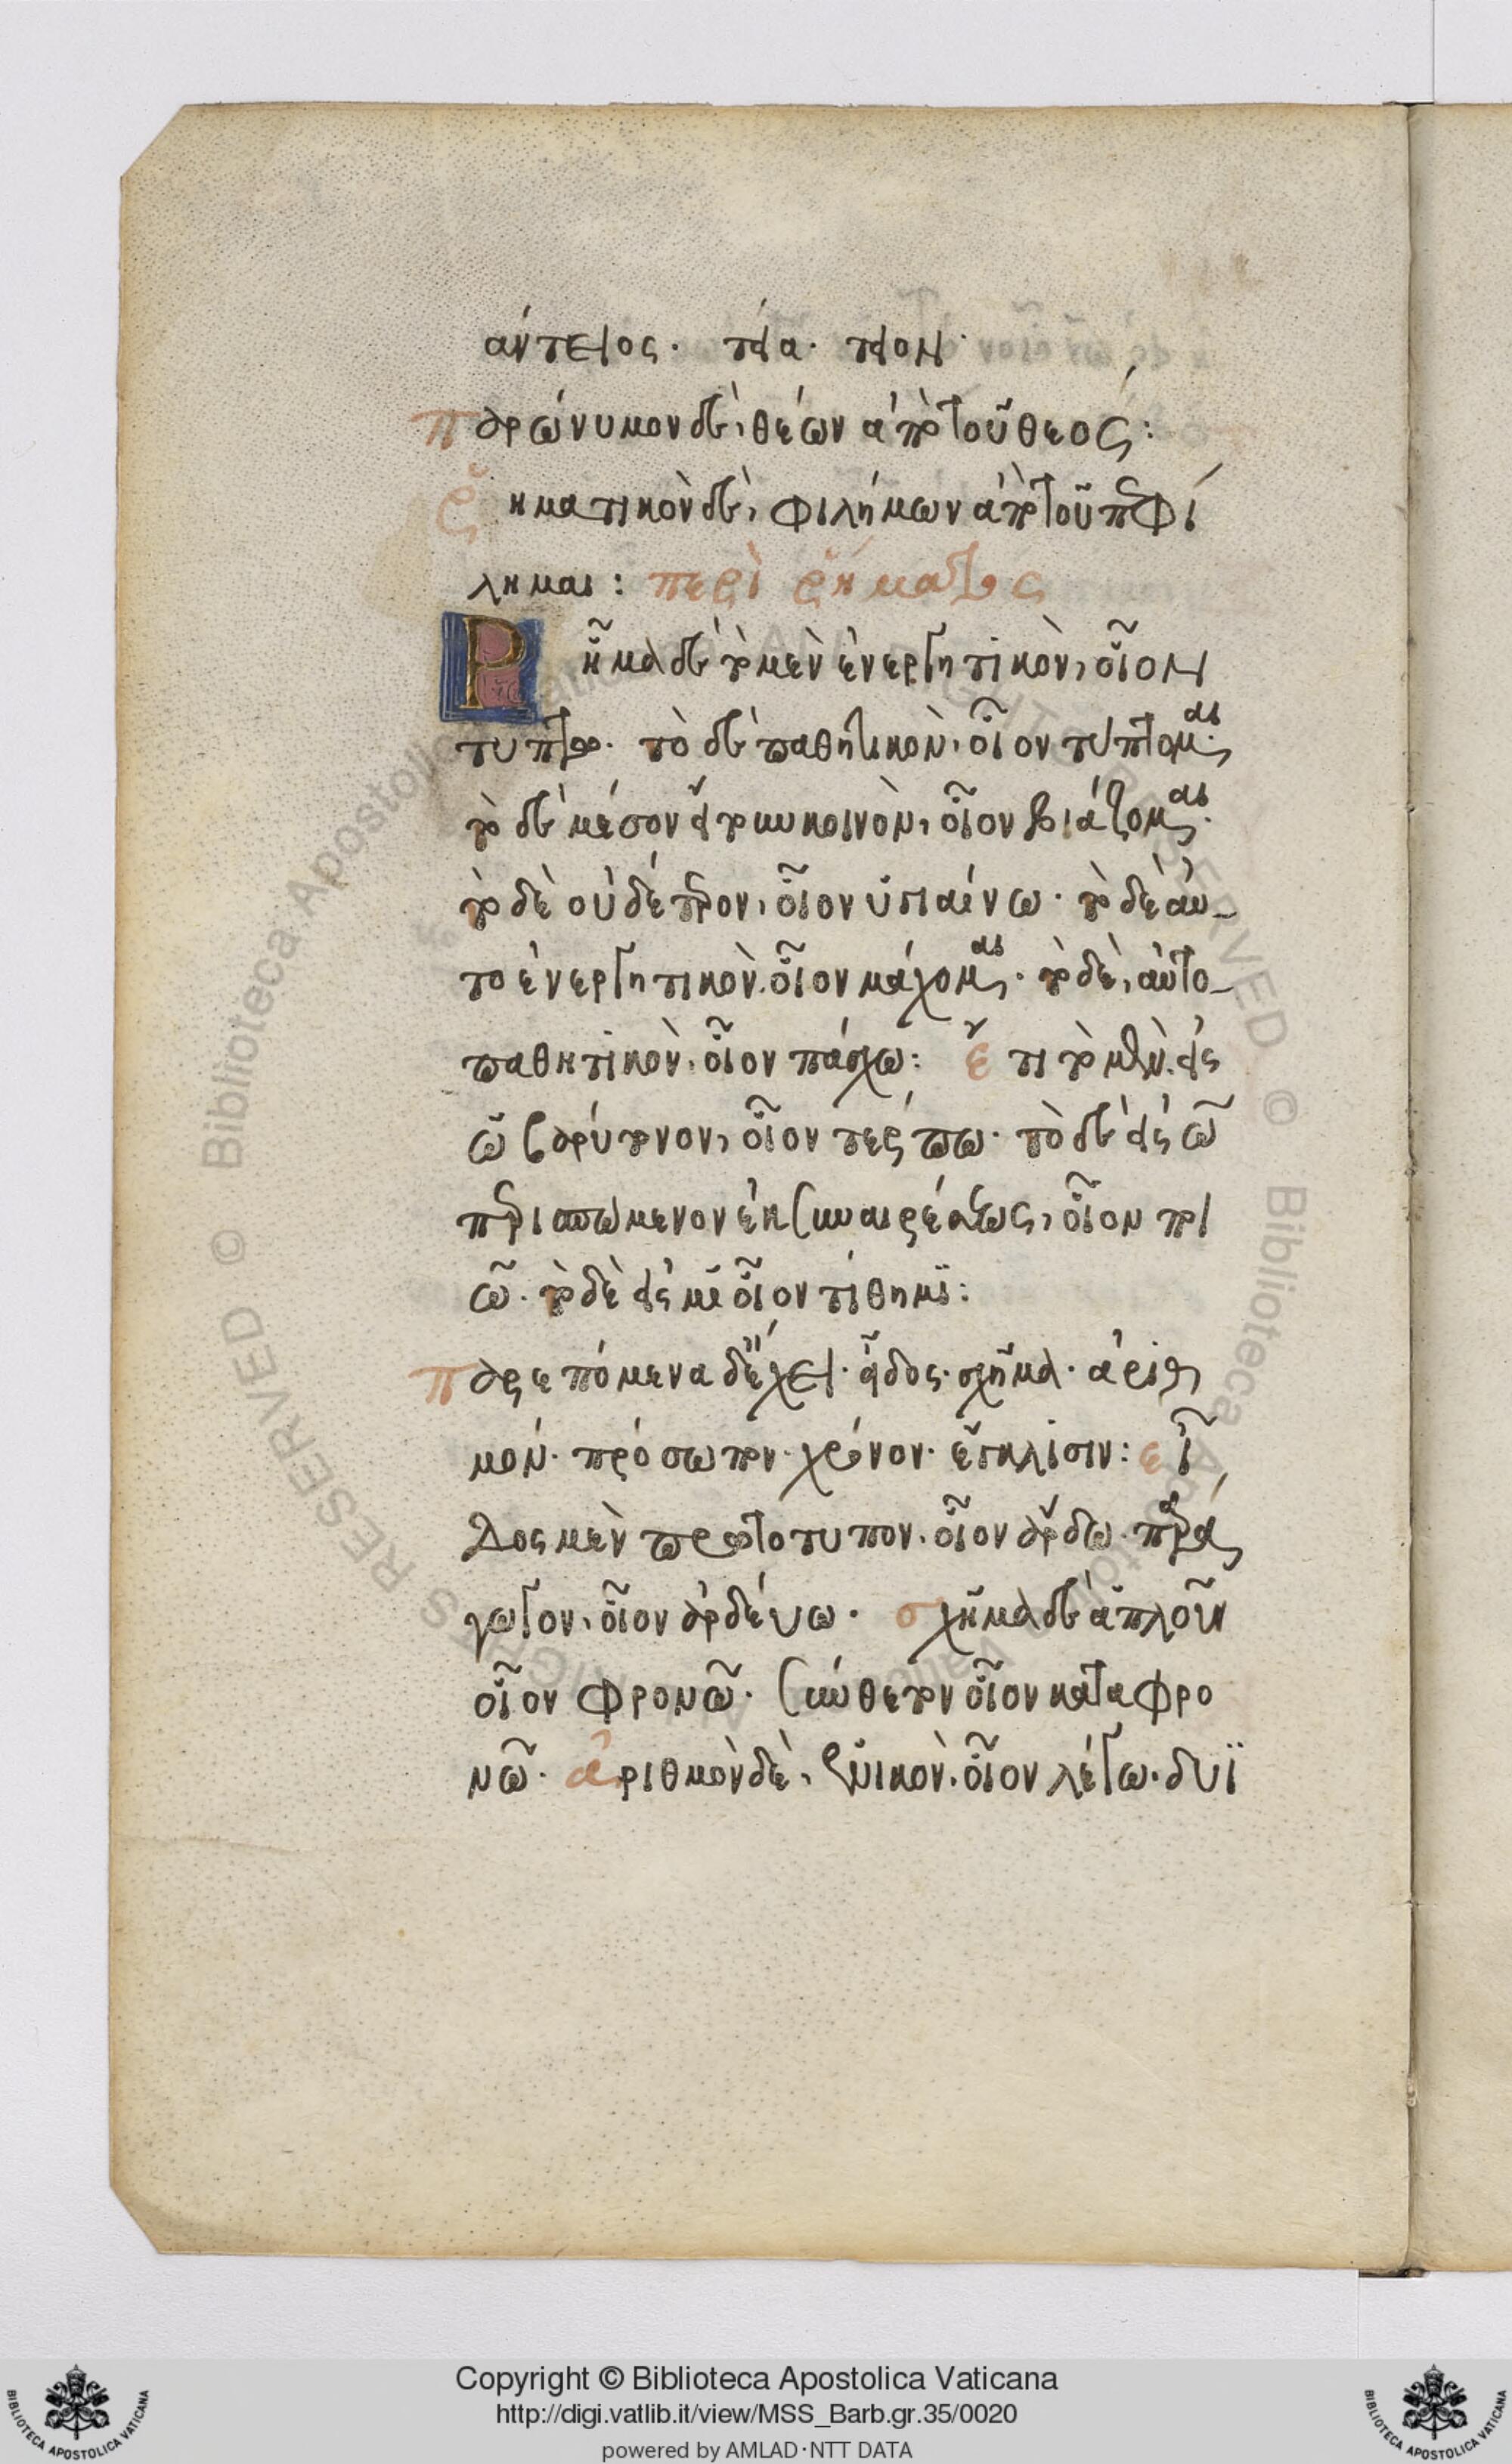 αντειος· τέα· τέον·
παρώνυμον δὲ, θέων ἀπὸ τοῦ θεός:
ῥηματικὸν δὲ, φιλήμων ἀπὸ τοῦ πεφί
λημαι: περὶ ῥήματος
Ρῆμα δὲ τὸ μὲν ἐνεργητικὸν, οἷον
τυπτω· τὸ δὲ παθητικὸν, οἷον τύπτομαι·
τὸ δὲ μέσον ἤτοι κοινὸν, οἷον βιάζομαι·
τὸ δὲ οὐδέτερον, οἷον ὑγιαίνω· τὸ δὲ αὐ-
τοενεργητικὸν. οἷον μάχομαι· τὸ δὲ, αὐτο-
παθητικὸν. οἷον πάσχω: ἔτι τὸ μὲν. εἰς
ω βαρύτονον, οἷον τέρπω· τὸ δὲ εἰς ω
περισπώμενον ἐκ συναιρέσεως, οἷον ποι
ῶ· τὸ δὲ εἰς μι οἷον τίθημι:
παρεπόμενα δὲ ἔχει· εἶδος· σχῆμα· ἀριθ
μόν· πρόσωπον· χρόνον· ἔγκλισιν: εἶ
δος μὲν πρωτότυπον. οἷον ἄρδω· παρα
γωγον, οἷον ἀρδεύω· σχῆμα δὲ ἁπλοῦν
οἷον φρονῶ· σύνθετον οἷον καταφρο
νῶ· ἀριθμὸν δὲ, ἑνικὸν. οἷον λέγω. δυϊ
Copyright © Biblioteca Apostolica Vaticana
http://digi.vatlib.it/view/MSS_Barb.gr.35/0020
powered by AMLAD·NTT DATA